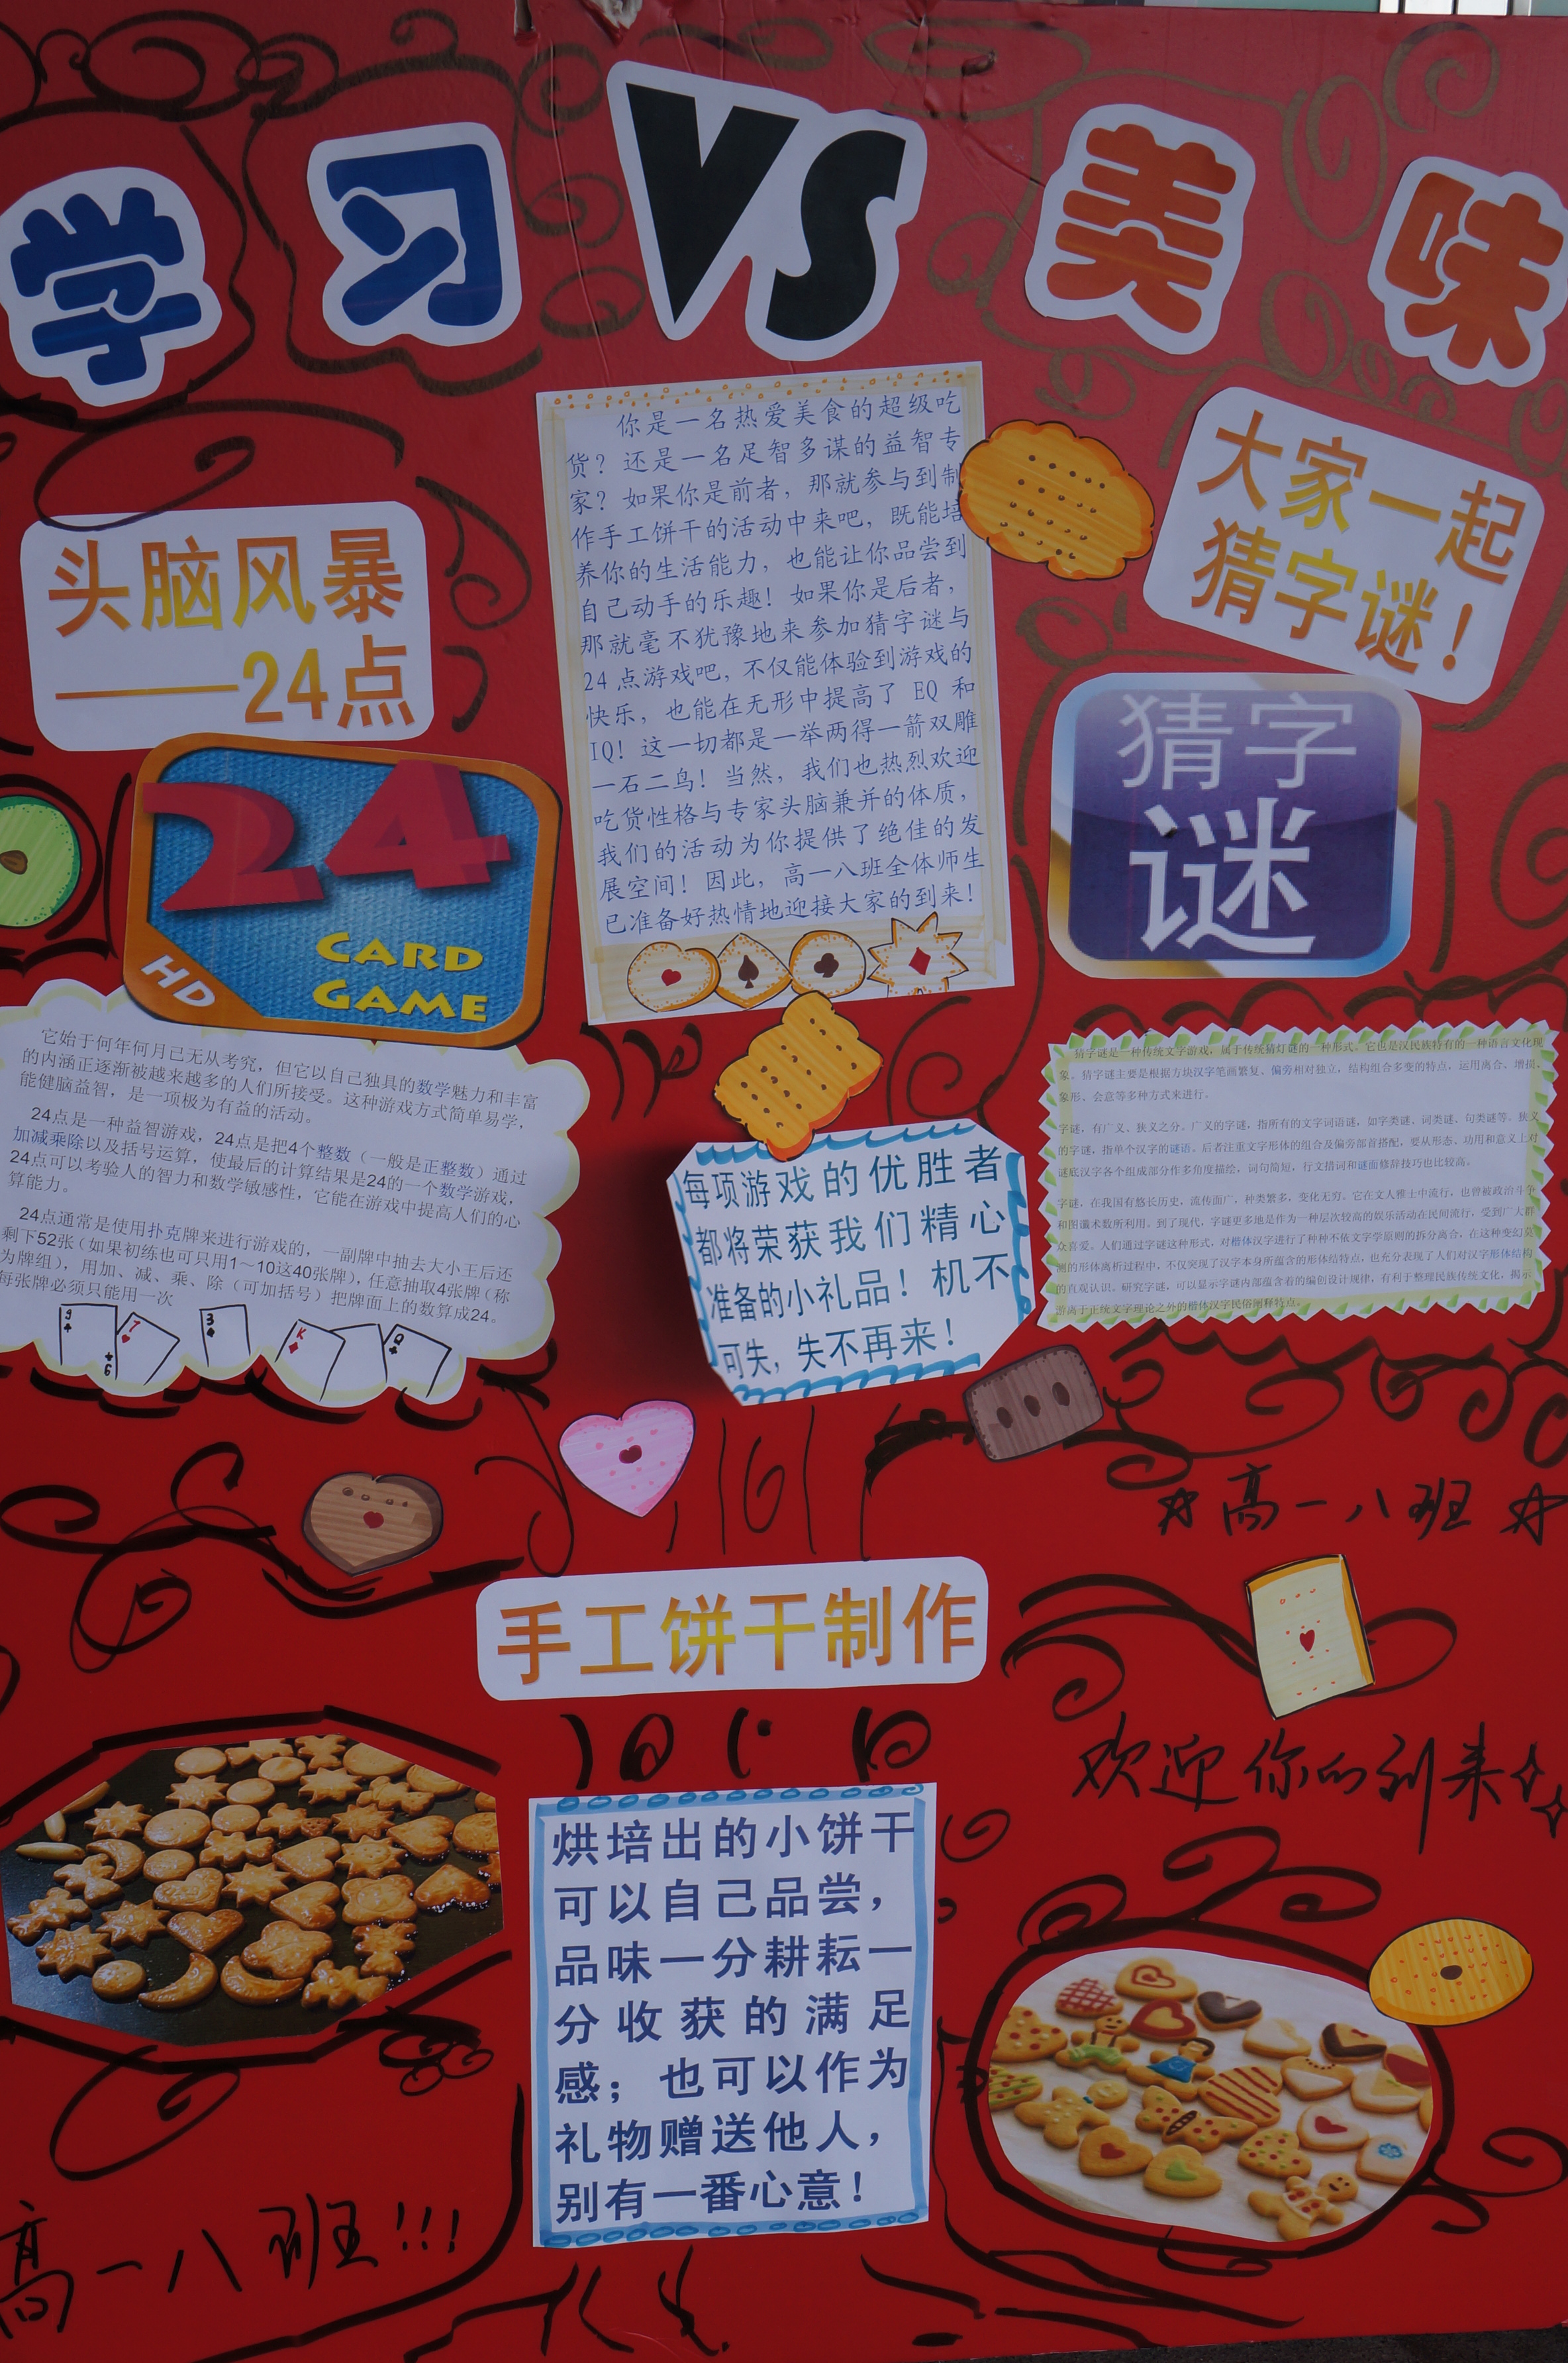 学习VS美味
你是一名热爱美食的超级吃
货？还是一名足智多谋的益智专
家？如果你是前者，那就参与到制
作手工饼干的活动中来吧，既能培
养你的生活能力，也能让你品尝到
自己动手的乐趣！如果你是后者，
那就毫不犹豫地来参加猜字谜与
24点游戏吧，不仅能体验到游戏的
快乐，也能在无形中提高了 EQ 和
IQ！这一切都是一举两得一箭双雕
一石二鸟！当然，我们也热烈欢迎
吃货性格与专家头脑兼并的体质，
我们的活动为你提供了绝佳的发
展空间！因此，高一八班全体师生
已准备好热情地迎接大家的到来！
头脑风暴
——24点
24
CARD
GAME
HD
它始于何年何月己无从考究，但它以自己独具的数学魅力和丰富
的内涵正逐渐被越来越多的人们所接受。这种游戏方式简单易学，
能健脑益智，是一项极为有益的活动。
24点是一种益智游戏，24点是把4个整数（一般是正整数）通过
加减乘除以及括号运算，使最后的计算结果是24的一个数学游戏，
24点可以考验人的智力和数学敏感性，它能在游戏中提高人们的心
算能力。
24点通常是使用扑克牌来进行游戏的，一副牌中抽去大小王后还
剩下52张（如果初练也可只用1～10这40张牌），任意抽取4张牌（称
为牌组），用加、减、乘、除（可加括号）把牌面上的数算成24。
每张牌必须只能用一次
9 7 3 K Q
9
大家一起
猜字谜！
猜字
谜
猜字谜是一种传统文字游戏，属于传统猜灯谜的一种形式。它也是汉民族特有的一种语言文化现
象。猜字谜主要是根据方块汉字笔画繁复、偏旁相对独立，结构组合多变的特点，运用离合、增损、
象形、会意等多种方式来进行。
字谜，有广义、狭义之分。广义的字谜，指所有的文字词语谜，如字类谜、词类谜、句类谜等。狭义
的字谜，指单个汉字的谜语。后者注重文字形体的组合及偏旁部首搭配，要从形态、功用和意义上对
谜底汉字各个组成部分作多角度描绘，词句简短，行文措词和谜面修辞技巧也比较高。
字谜，在我国有悠长历史，流传面广，种类繁多，变化无穷。它在文人雅士中流行，也曾被政治斗争
和图谶术数所利用。到了现代，字谜更多地是作为一种层次较高的娱乐活动在民间流行，受到广大群
众喜爱。人们通过字谜这种形式，对楷体汉字进行了种种不依文字学原则的拆分离合，在这种变幻莫
测的形体离析过程中，不仅突现了汉字本身所蕴含的形体结特点，也充分表现了人们对汉字形体结构
的直观认识。研究字谜，可以显示字谜内部蕴含着的编创设计规律，有利于整理民族传统文化，揭示
游离于正统文字理论之外的楷体汉字民俗阐释特点。
每项游戏的优胜者
都将荣获我们精心
准备的小礼品！机不
可失，失不再来！
☆高一八班☆
手工饼干制作
欢迎你的到来
烘培出的小饼干
可以自己品尝，
品味一分耕耘一
分收获的满足
感；也可以作为
礼物赠送他人，
别有一番心意！
高一八班!!!